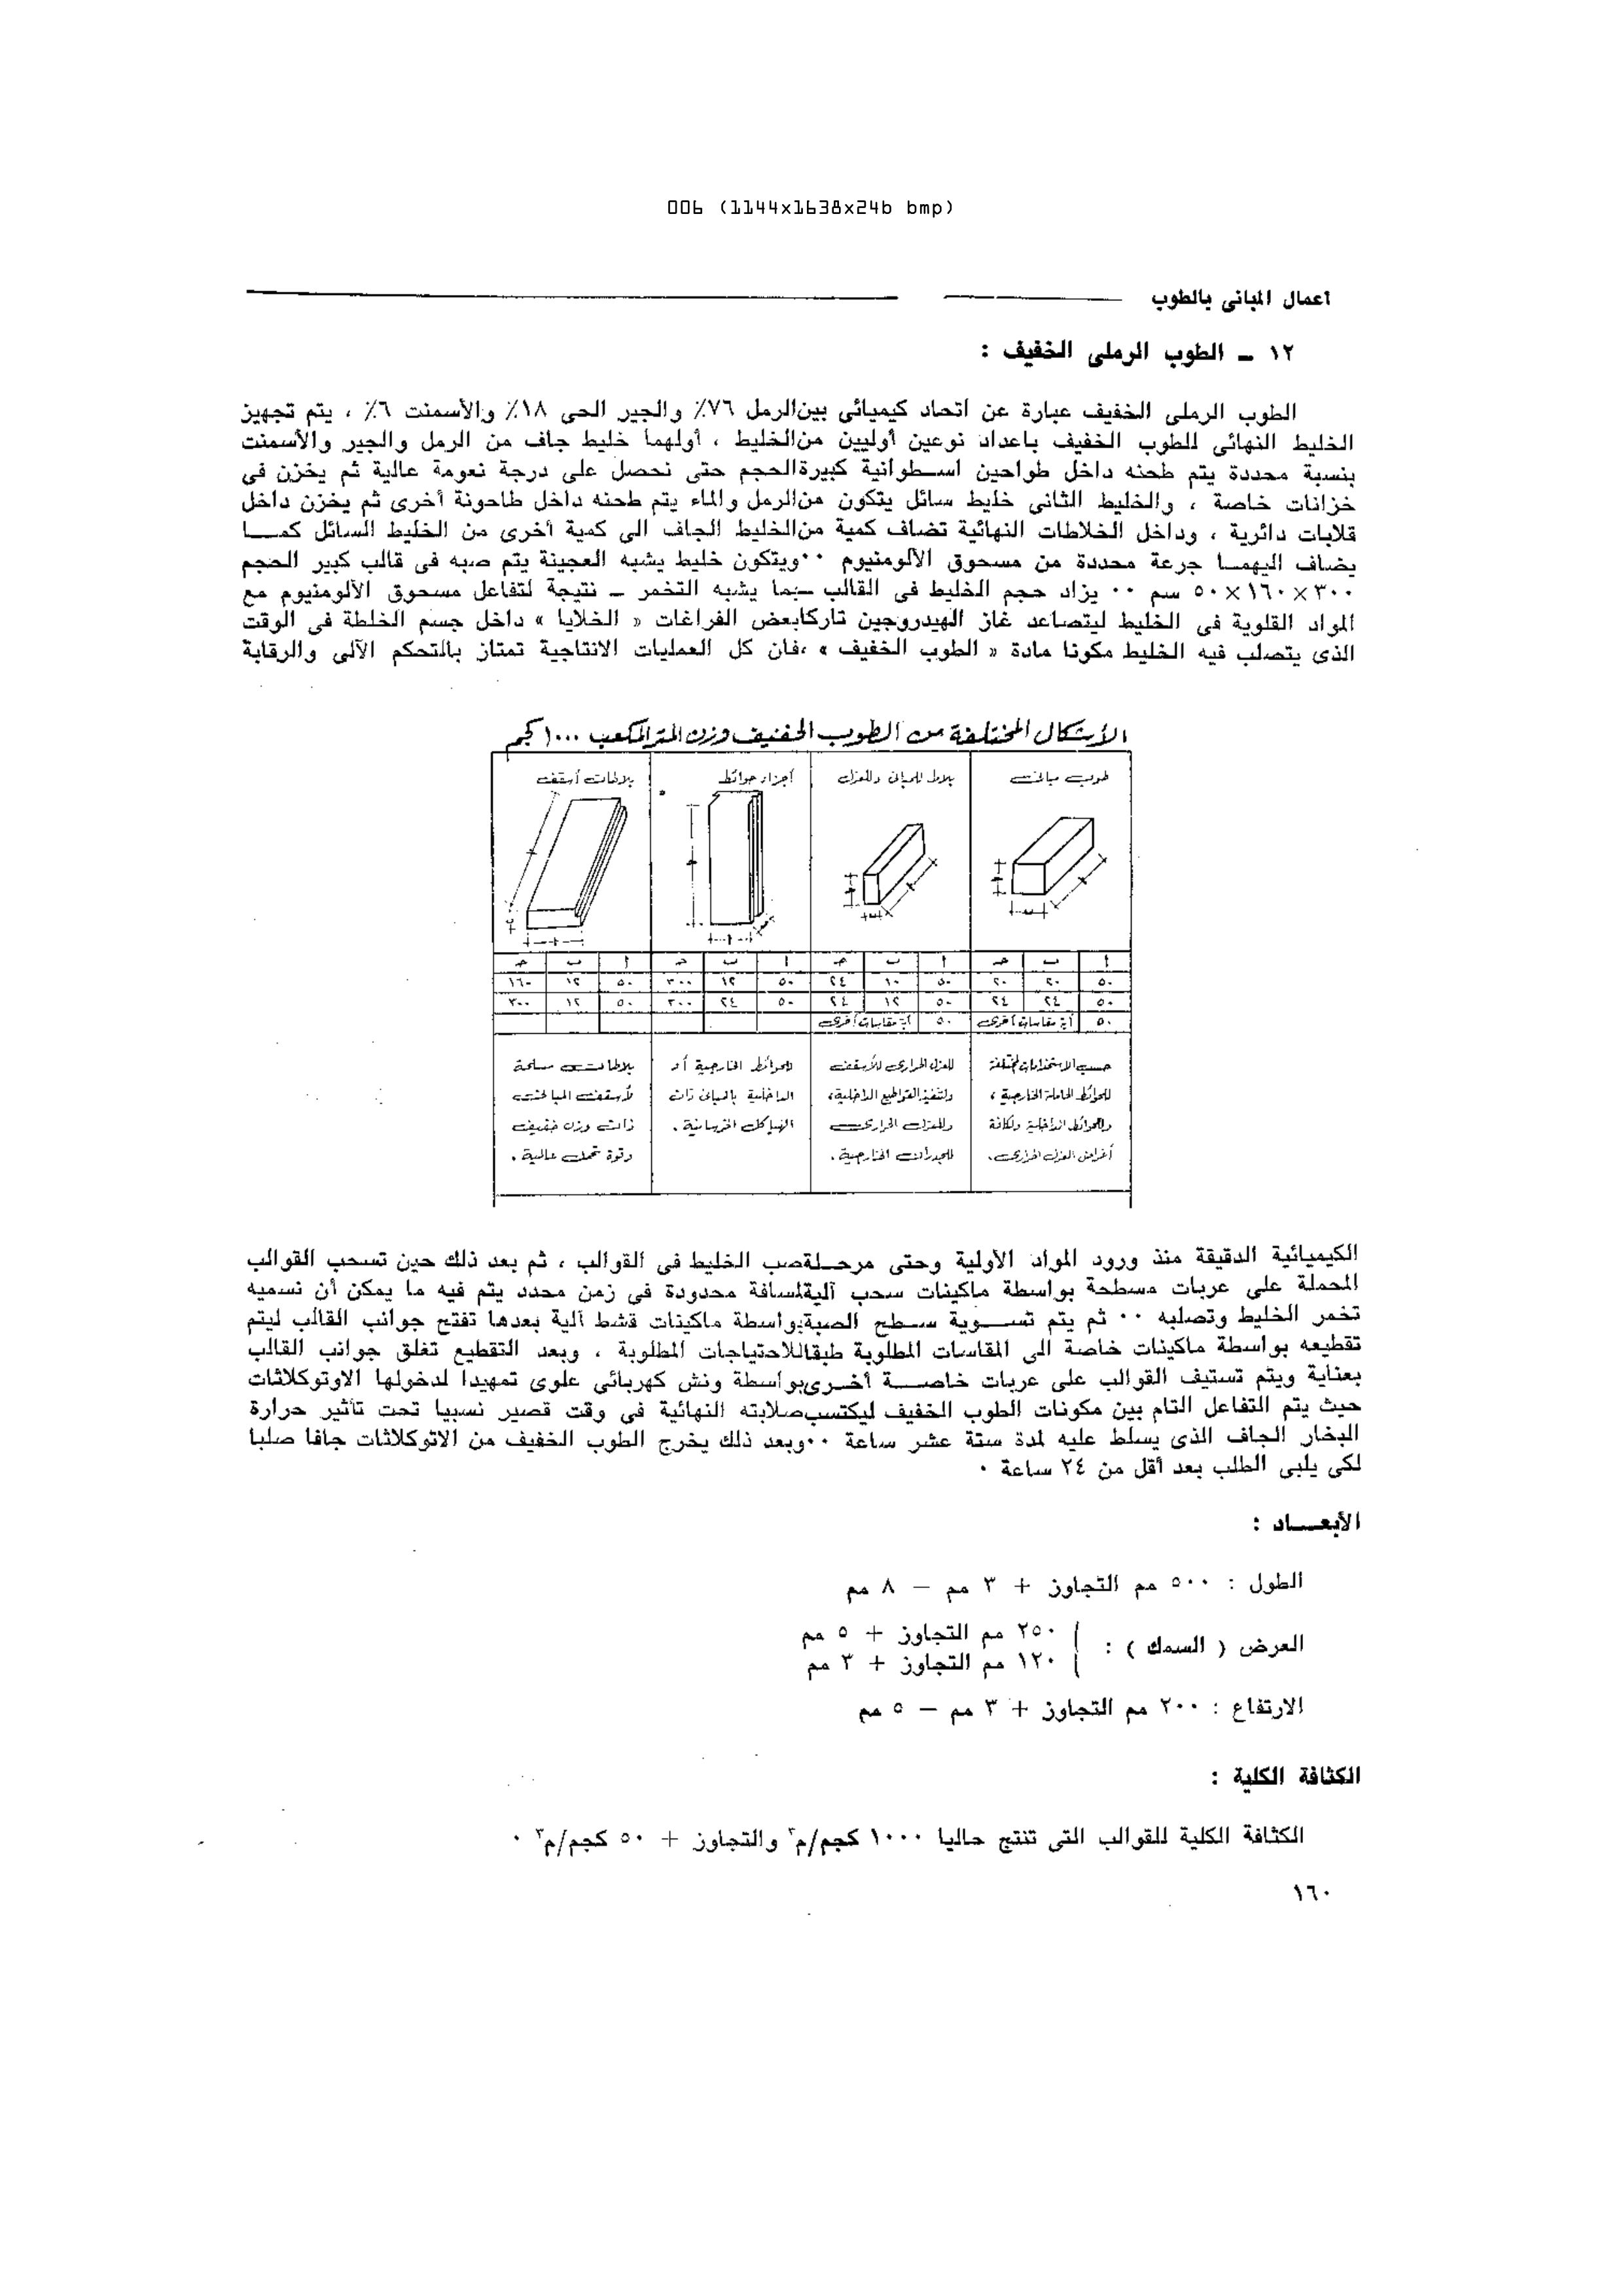 006 (1144x1638x24b bmp)
أعمال المبانى بالطوب
١٢ ـ الطوب الرملى الخفيف :
الطوب الرملى الخفيف عبارة عن اتحاد كيميائى بين الرمل ٧٦٪ والجير الحى ١٨٪ والأسمنت ٦٪ ، يتم تجهيز
الخليط النهائى للطوب الخفيف باعداد نوعين أوليين من الخليط ، أولهما خليط جاف من الرمل والجير والأسمنت
بنسبة محددة يتم طحنه داخل طواحين اسطوانية كبيرة الحجم حتى نحصل على درجة نعومة عالية ثم يخزن فى
خزانات خاصة ، والخليط الثانى خليط سائل يتكون من الرمل والماء يتم طحنه داخل طاحونة أخرى ثم يخزن داخل
قلابات دائرية ، وداخل الخلاطات النهائية تضاف كمية من الخليط الجاف الى كمية أخرى من الخليط السائل كمــا
يضاف اليهمـا جرعة محددة من مسحوق الألومنيوم ٠٠ ويتكون خليط يشبه العجينة يتم صبه فى قالب كبير الحجم
٣٠٠×١٦٠×٥٠ سم ٠٠ يزاد حجم الخليط فى القالب ـ بما يشبه التخمر ـ نتيجة لتفاعل مسحوق الألومنيوم مع
المواد القلوية فى الخليط ليتصاعد غاز الهيدروجين تاركا بعض الفراغات « الخلايا » داخل جسم الخلطة فى الوقت
الذى يتصلب فيه الخليط مكونا مادة « الطوب الخفيف » ،فان كل العمليات الانتاجية تمتاز بالتحكم الآلى والرقابة
الأشكال المختلفة من الطوب الخفيف وزن المتر المكعب ١٠٠٠ كجم
طوب مبانى	بلاط للمبانى وللعزل	أجزاء حوائط	بلاطات أسقف
أ ب جـ أ ب جـ أ ب جـ أ ب جـ
٥٠ ٢٠ ٢٠ ٥٠ ١٠ ٢٤ ٥٠ ١٢ ٣٠٠ ٥٠ ١٢ ١٦٠
٥٠ ٢٤ ٢٤ ٥٠ ١٢ ٢٤ ٥٠ ٢٤ ٣٠٠ ٥٠ ١٢ ٣٠٠
٥٠ أية مقاسات أخرى ٥٠ أية مقاسات أخرى
حسب الاستخدامات المختلفة
للحوائط الحاملة الخارجية ،
وللحوائط الداخلية ولكافة
أغراض العزل الحرارى .
للعزل الحرارى للأسقف
ولتنفيذ القواطيع الداخلية،
وللعزل الحرارى
للجدران الخارجية .
للحوائط الخارجية أو
الداخلية بالمبانى ذات
الهياكل الخرسانية .
بلاطات مسلحة
لأسقف المبانى
ذات وزن خفيف
وقوة تحمل عالية .
الكيميائية الدقيقة منذ ورود المواد الأولية وحتى مرحـلة صب الخليط فى القوالب ، ثم بعد ذلك حين تسحب القوالب
المحملة على عربات مسطحة بواسطة ماكينات سحب آلية لمسافة محدودة فى زمن محدد يتم فيه ما يمكن أن نسميه
تخمر الخليط وتصلبه ٠٠ ثم يتم تسـوية سـطح الصبة بواسطة ماكينات قشط آلية بعدها تفتح جوانب القالب ليتم
تقطيعه بواسطة ماكينات خاصة الى المقاسات المطلوبة طبقا للاحتياجات المطلوبة ، وبعد التقطيع تغلق جوانب القالب
بعناية ويتم تستيف القوالب على عربات خاصــة أخـرى بواسطة ونش كهربائى علوى تمهيدا لدخولها الاوتوكلاثات
حيث يتم التفاعل التام بين مكونات الطوب الخفيف ليكتسب صلابته النهائية فى وقت قصير نسبيا تحت تأثير حرارة
البخار الجاف الذى يسلط عليه لمدة ستة عشر ساعة ٠٠ وبعد ذلك يخرج الطوب الخفيف من الاتوكلاثات جافا صلبا
لكى يلبى الطلب بعد أقل من ٢٤ ساعة ٠
الأبعــاد :
الطول : ٥٠٠ مم التجاوز + ٣ مم – ٨ مم
العرض ( السمك ) : ٢٥٠ مم التجاوز + ٥ مم
١٢٠ مم التجاوز + ٣ مم
الارتفاع : ٢٠٠ مم التجاوز + ٣ مم – ٥ مم
الكثافة الكلية :
الكثافة الكلية للقوالب التى تنتج حاليا ١٠٠٠ كجم/م٣ والتجاوز + ٥٠ كجم/م٣ ٠
١٦٠